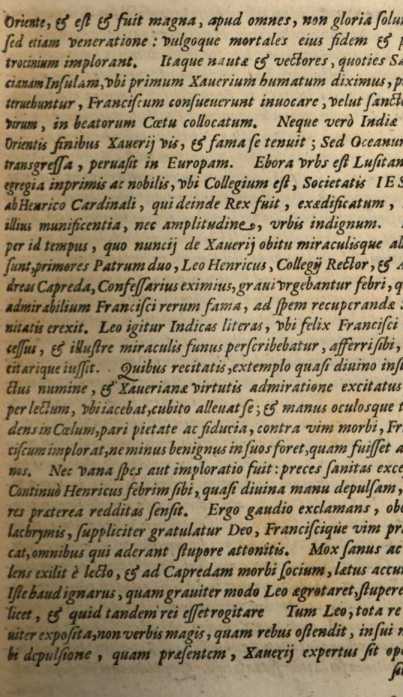 Oriente, & est & fuit magna, apud omnes, non gloria solu
sed etiam veneratione: vulgoque mortales eius fidem & p
trocinium implorant. Itaque nautæ & vectores, quoties Sa
cianam Insulam, vbi primum Xauerium humatum diximus, p
teruehuntur, Franciscum consueuerunt inuocare, velut sancto
virum, in beatorum Cœtu collocatum. Neque verò Indiæ
Orientis finibus Xauerij vis, & fama se tenuit; Sed Oceanum
transgressa, peruasit in Europam. Ebora vrbs est Lusitan
egregia inprimis ac nobilis, vbi Collegium est, Societatis IES
ab Henrico Cardinali, qui deinde Rex fuit, exædificatum,
illius munificentia, nec amplitudine, vrbis indignum.
per id tempus, quo nuncij de Xauerij obitu miraculisque al
sunt, primores Patrum duo, Leo Henricus, Collegij Rector, & A
dreas Capreda, Confessarius eximius, graui vrgebantur febri, q
admirabilium Francisci rerum fama, ad spem recuperandæ S
nitatis erexit. Leo igitur Indicas literas, vbi felix Francisci
cessus, & illustre miraculis funus perscribebatur, afferri sibi,
citarique iussit. Quibus recitatis, extemplo quasi diuino inst
ctus numine, & Xauerianæ virtutis admiratione excitatus
per lectum, vbi iacebat, cubito alleuat se; & manus oculosque t
dens in Cœlum, pari pietate ac fiducia, contra vim morbi, Fr
ciscum implorat, ne minus benignus in suos foret, quam fuisset a
nos. Nec vana spes aut imploratio fuit: preces sanitas exce
Continuò Henricus febrim sibi, quasi diuina manu depulsam,
res præterea redditas sensit. Ergo gaudio exclamans, obo
lachrymis, suppliciter gratulatur Deo, Franciscique vim præ
cat, omnibus qui aderant stupore attonitis. Mox sanus ac
lens exilit è lecto, & ad Capredam morbi socium, lætus accur
Iste haud ignarus, quam grauiter modo Leo ægrotaret, stupere
licet, & quid tandem rei esset rogitare Tum Leo, tota re
uiter exposita, non verbis magis, quam rebus ostendit, in sui m
bi depulsione, quam præsentem, Xauerij expertus sit ope